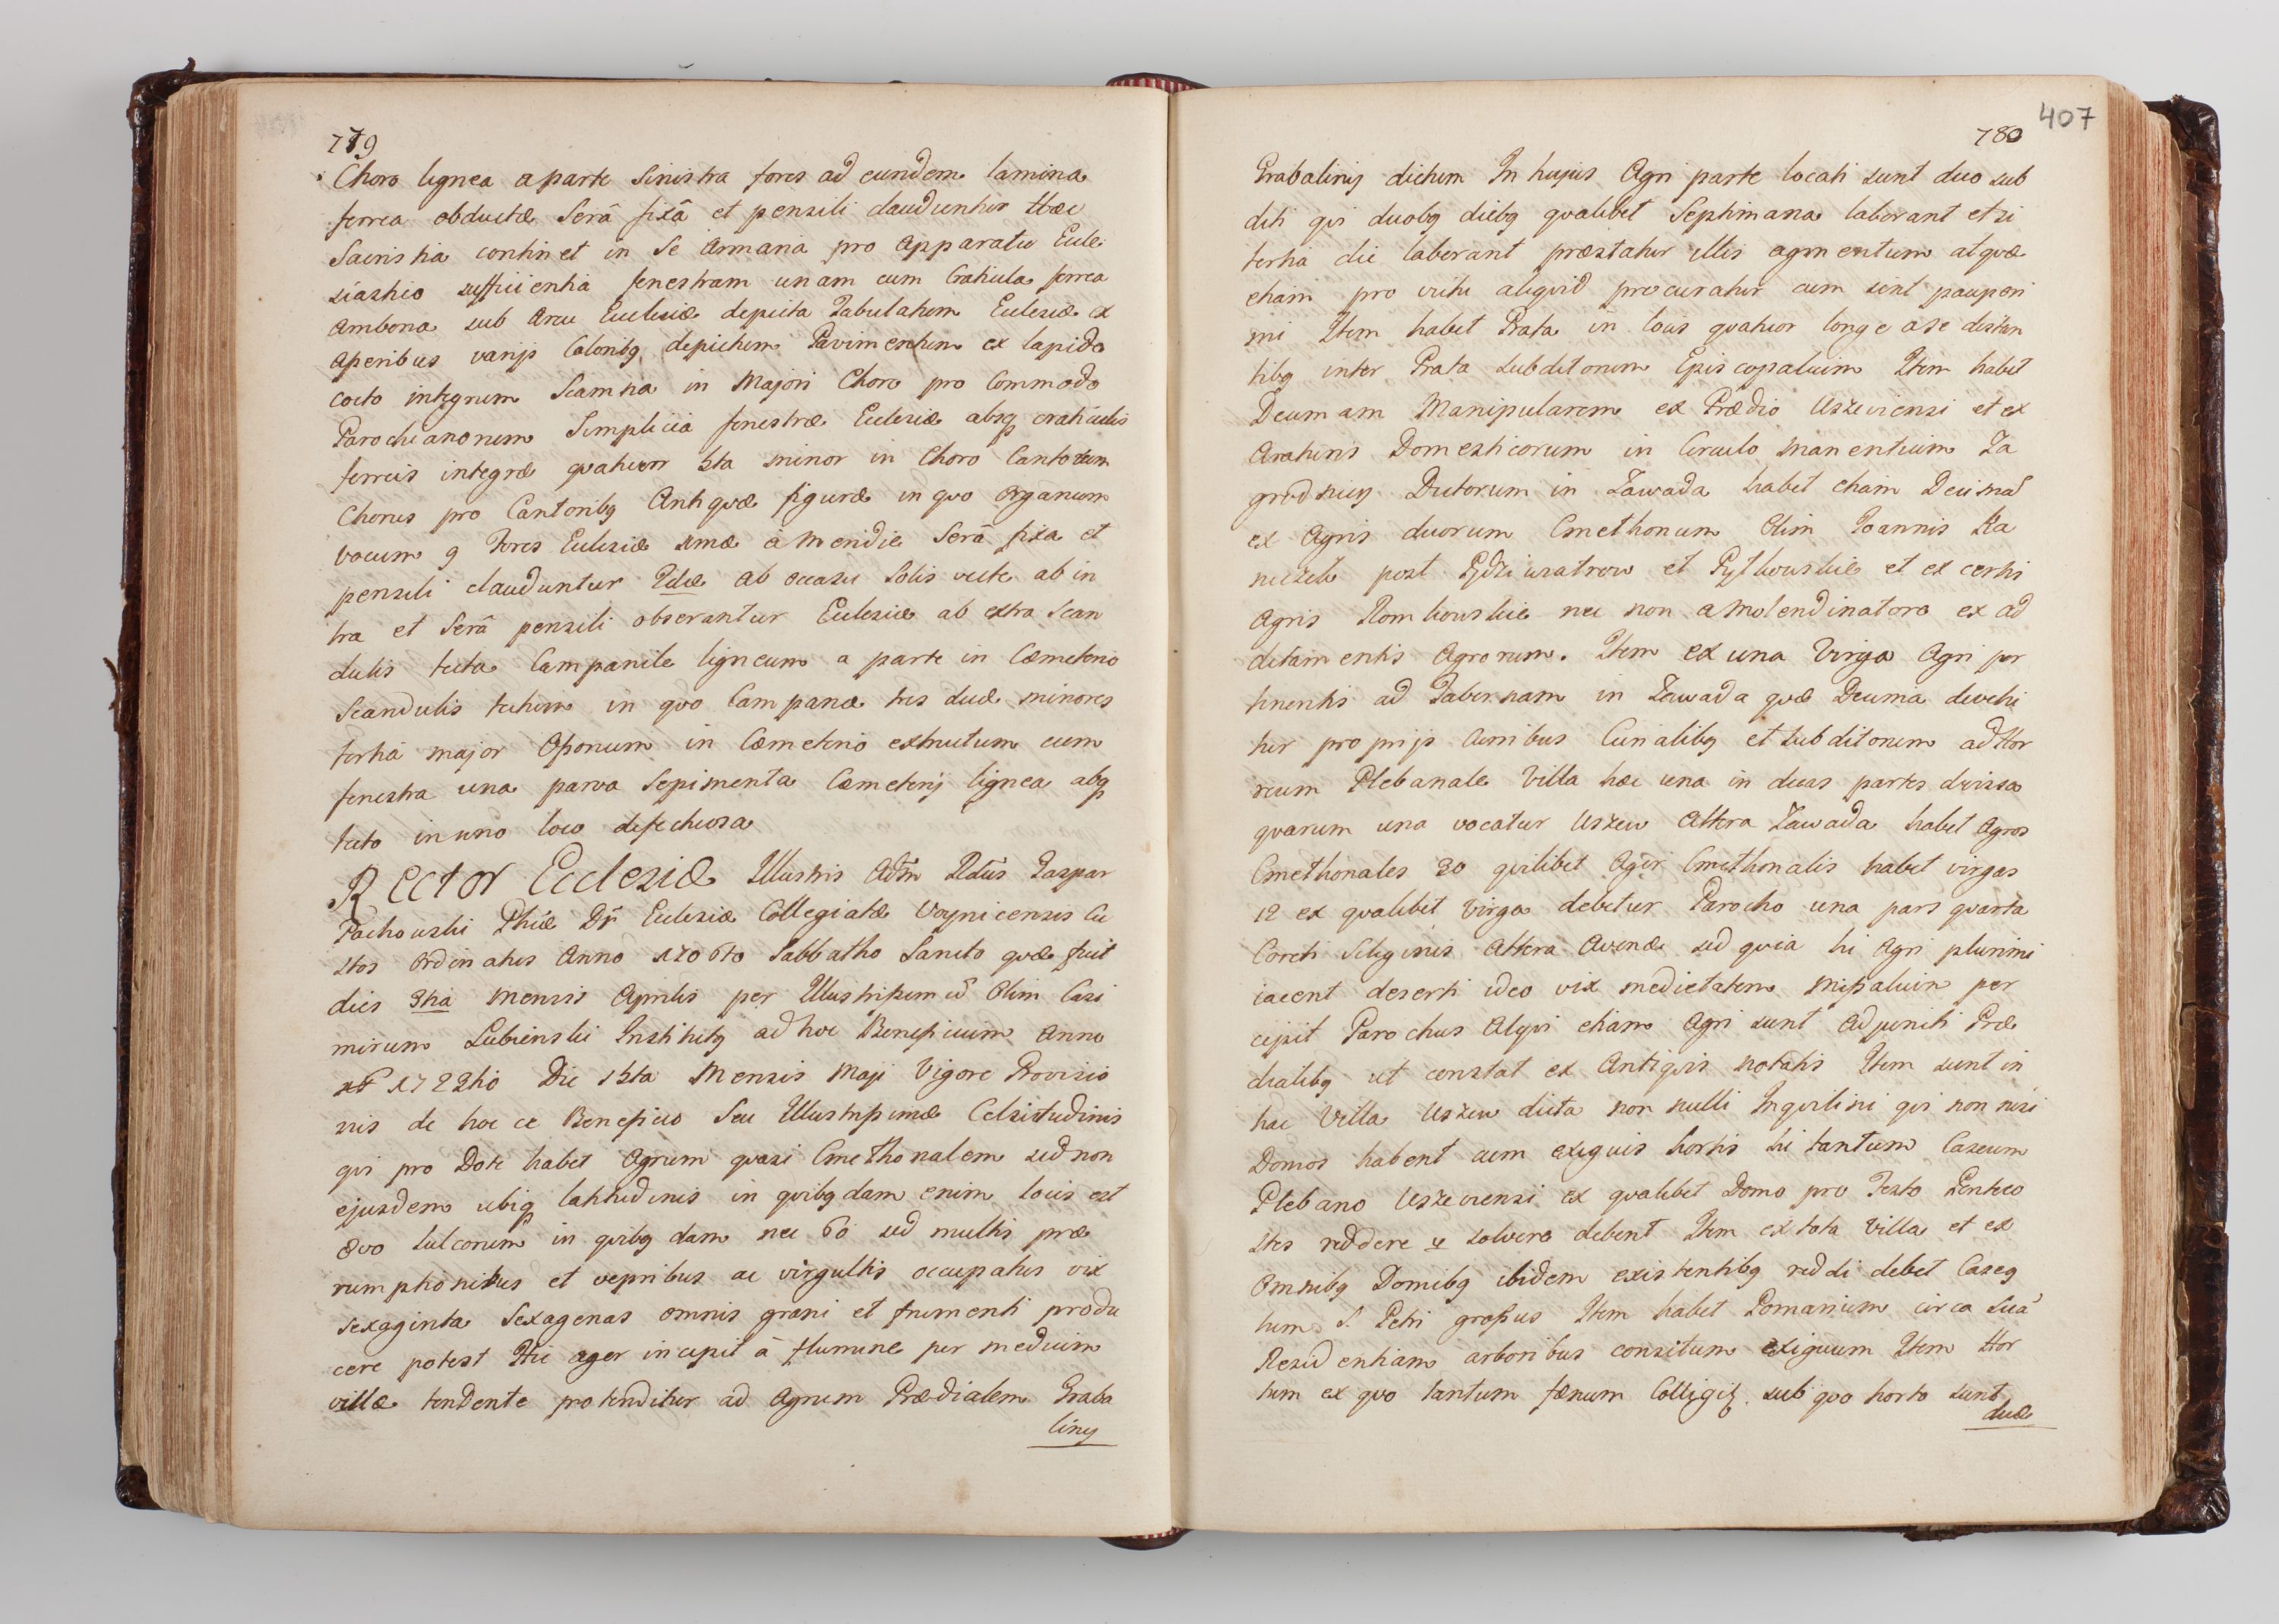 779
Choro lignea a parte Sinistra fores ad eundem lamina
ferrea obductæ Serâ fixâ et pensili clauduntur Hæc
Sacristia continet in Se Armaria pro Apparatu Eccle
siastico sufficientia fenestram unam cum Craticula ferrea
Ambona sub Arcu Ecclesiæ depicta Tabulatum Ecclesiæ ex
Aperibus varijs Coloribq depictum Pavimentum ex lapide
cocto integrum Scamna in Majori Choro pro Commodo
Parochianorum Simplicia fenestræ Ecclesiæ absq craticulis
ferreis integræ quatuor 5ta minor in Choro Cantorum
Chorus pro Cantoribq Antiquæ figuræ in quo Organum
vocum 9 Fores Ecclesiæ 1mæ a Meridie Serâ fixa et
pensili clauduntur 2dæ ab occasu Solis vecte ab in
tra et Serâ pensili obserantur Ecclesia ab extra Scan
dulis tecta Campanile ligneum a parte in Cæmeterio
Scandulis tectum in quo Campanæ tres duæ minores
tertia major Osorium in Cæmeterio extructum cum
fenestra una parva Sepimenta Cæmeterij lignea absq
tecto in uno loco defectuosa
Rector Ecclesiæ Illustris Adm Rdus Gaspar
Pachowski Phiæ Dr Ecclesiæ Collegiatæ Voynicensis Cu
stos Ordinatus Anno 1706to Sabbatho Sancto quæ fuit
dies 3tia Mensis Aprilis per Illustrissimū Olim Casi
mirum Lubienski Institutq ad hoc Beneficium Anno
1722tio Die 15ta Mensis Maji Vigore Provisio
nis de hoc ce Beneficio Seu Illustrissimæ Celsitudinis
qui pro Dote habet Agrum quasi Cmethonalem sed non
ejusdem ubiq latitudinis in quibqdam enim locis est
Sulcorum in quibqdam nec 60 sed multis præ
rumptionibus et vepribus ac virgultis occupatus vix
sexaginta Sexagenas omnis grani et frumenti produ
cere potest Hic ager incipit à flumine per medium
villæ tendente protenditur ad Agrum Prædialem Graba
liny
407
780
Grabaliny dictum In hujus Agri parte locati sunt duo sub
diti qui duobq diebq qualibet Septimana laborant et si
tertia die laborant præstatur illis agmentum atquæ
etiam pro victu aliquid procuratur cum sint pauperi
mi Item habet Prata in locis quatuor longe a se distan
tibq inter Prata Subditorum Episcopalium Item habet
Decimam Manipularem ex Prædio Uszeviensi et ex
Araturis Domesticorum in Circulo manentium Za
grodnicy Dictorum in Zawada habet etiam Decimā
ex Agris duorum Cmethonum Olim Joannis Ka
post et et ex certis
Agris nec non a Molendinatore ex ad
ditamentis Agrorum. Item ex una Virga Agri per
tinentis ad Tabernam in Zawada quæ Decima devehi
tur proprijs Curribus Curialibq et Subditorum ad Hor
reum Plebanale Villa hæc una in duas partes divisa
quarum una vocatur Uszew Altera Zawada habet Agros
Cmethonales 30 quilibet Ager Cmethonalis habet virgas
12 ex qualibet Virga debetur Parocho una pars quarta
Coreti Siliginis Altera Avenæ sed quia hi Agri plurimi
iacent deserti ideo vix medietatem Missalium per
cipit Parochus Aliqui etiam Agri sunt Adjuncti Præ
dialibq ut constat ex Antiquis notatis Item sunt in
hac Villa Uszew dicta non nulli Inquilini qui non nisi
Domos habent cum exiguis hortis hi tantum Caseum
Plebano Uszeviensi ex qualibet Domo pro Festo Penteco
stes reddere et solvere debent Item ex tota Villa et ex
Omnibq Domibq ibidem existentibq reddi debet Caseq
tum S. Petri grossus Item habet Pomarium circa Suā
Residentiam arboribus consitum exiguum Item Hor
tum ex quo tantum fænum Colligit sub quo horto sunt
duæ